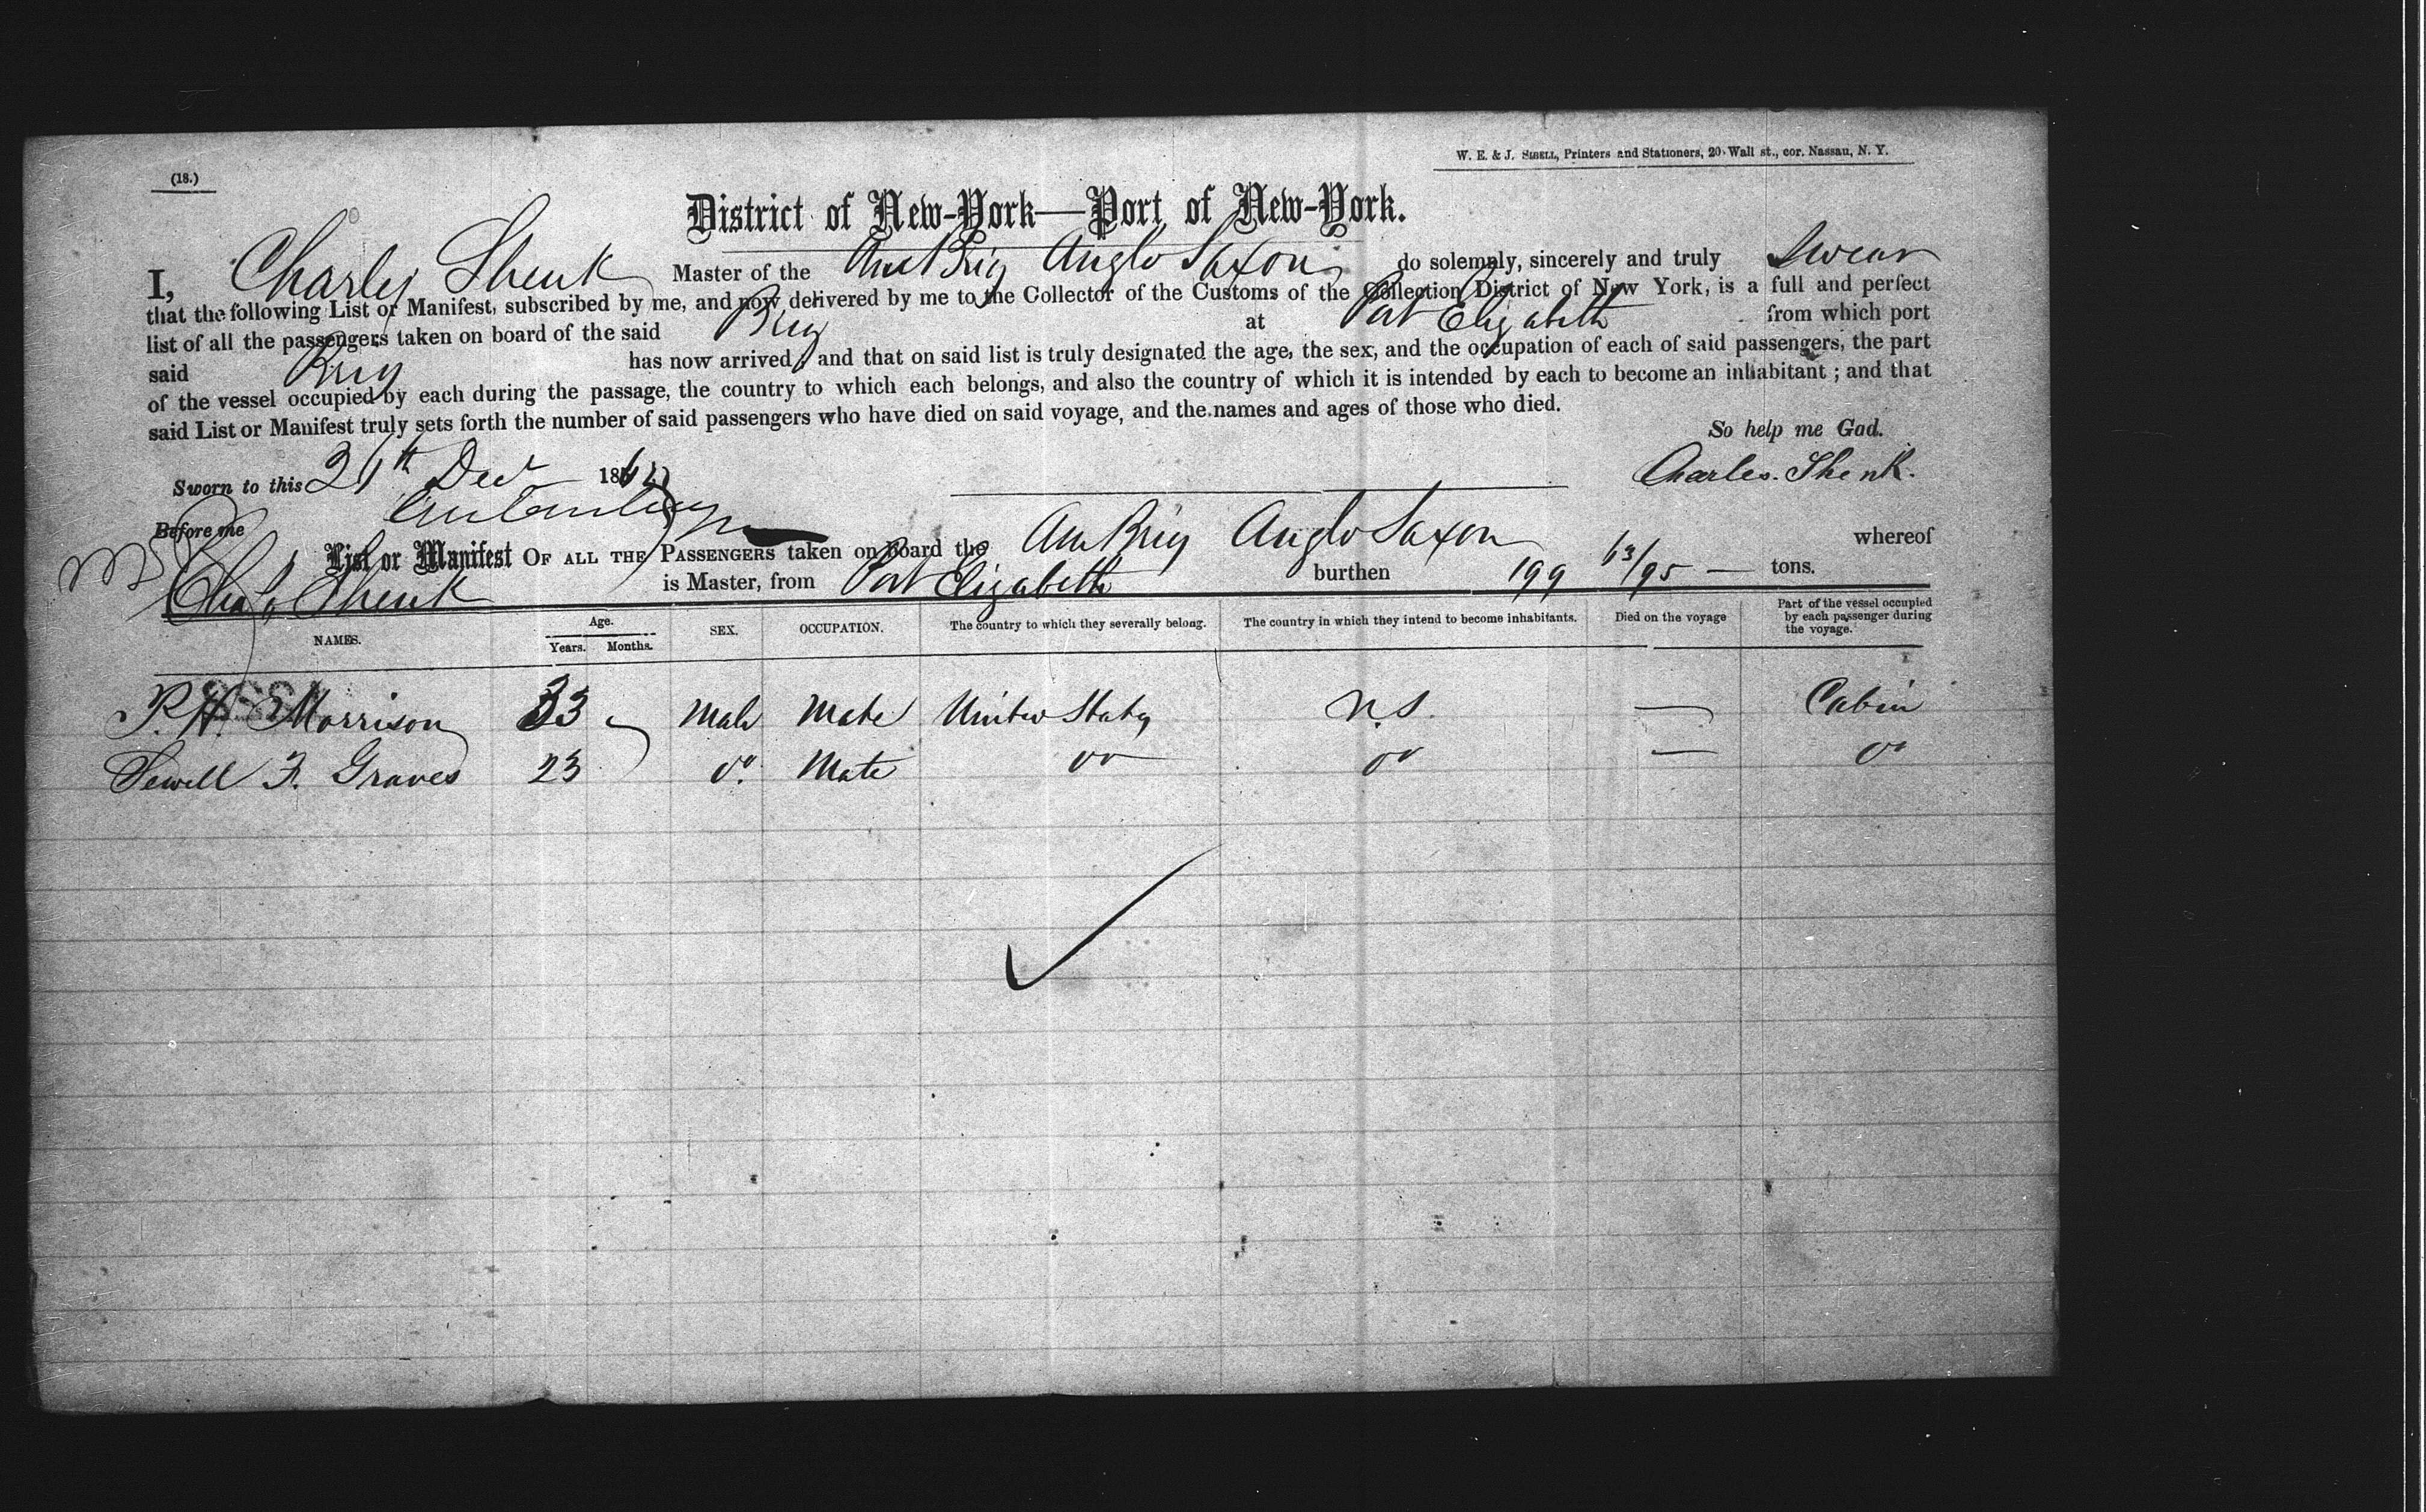 (18.)
W. E. & J. SIBELL, Printers and Stationers, 20 Wall st., cor. Nassau, N. Y.
District of New-York—Port of New-York.
I, Charles Shenk Master of the Am Brig Anglo Saxon do solemnly, sincerely and truly Swear
that the following List or Manifest, subscribed by me, and now delivered by me to the Collector of the Customs of the Collection District of New York, is a full and perfect
list of all the passengers taken on board of the said Brig at Port Elizabeth from which port
said Brig has now arrived; and that on said list is truly designated the age, the sex, and the occupation of each of said passengers, the part
of the vessel occupied by each during the passage, the country to which each belongs, and also the country of which it is intended by each to become an inhabitant; and that
said List or Manifest truly sets forth the number of said passengers who have died on said voyage, and the names and ages of those who died.
So help me God.
Sworn to this Dec 186
Charles. Shenk.
Before me
List or Manifest OF ALL THE PASSENGERS taken on board the Am Brig Anglo Saxon whereof
Chas Shenk is Master, from Port Elizabeth burthen 199 63/95 — tons.
NAMES. Age. Years. Months. SEX. OCCUPATION. The country to which they severally belong. The country in which they intend to become inhabitants. Died on the voyage Part of the vessel occupied by each passenger during the voyage.
P. H. Morrison 33 Male Mate United States — Cabin
Sewell F. Graves 23 do Mate do do — do